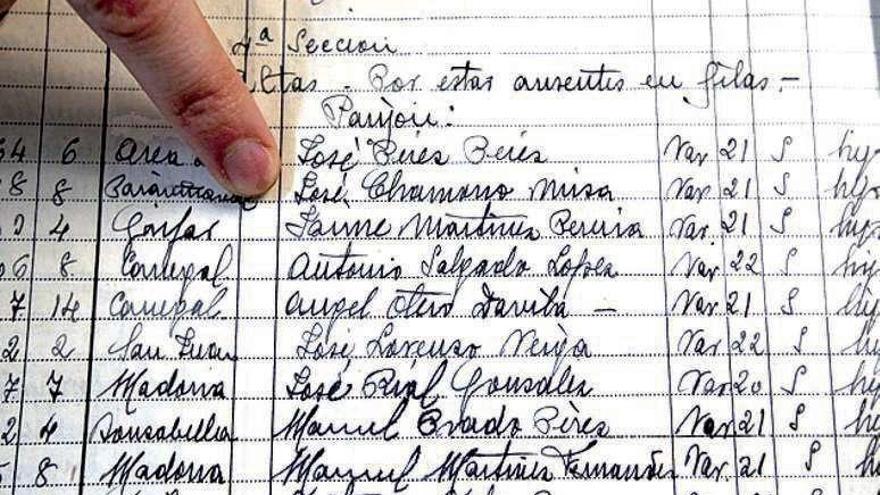 4ª Sección
Altas - Por estar ausentes en filas.-
Panjón:
34 6 Area José Pérez Pérez Var 21 S hijo
8 8 José Chamorro Misa Var 21 S hijo
2 4 Gaifar Jaime Martínez Pereira Var. 21 S hijo
6 8 Carregal Antonio Salgado López Var. 22 S hi
7 14 Carregal Angel Otero Davila — Var 21 S hi
2 2 San Juan José Lorenzo Veiga Var 22 S h
7 7 Madorra José Rial González Var 20 S hij
2 4 Manuel Prado Pérez Var 21 S h
5 8 Madorra Manuel Martínez Fernández Var. 21 S h